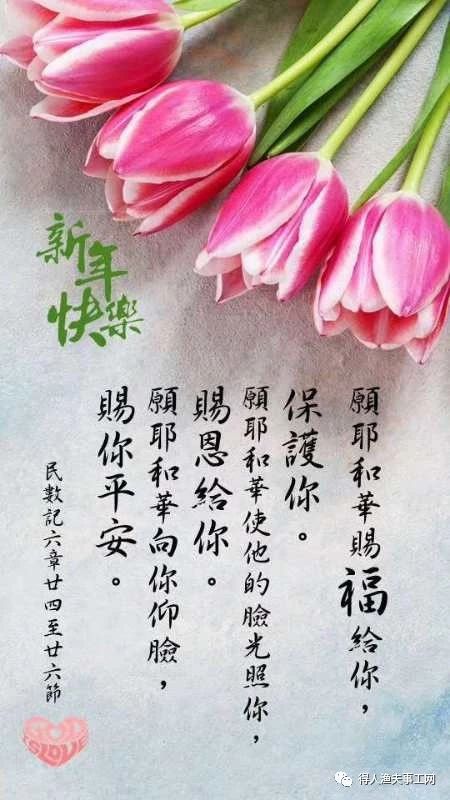 新年
快樂
願耶和華賜福給你，
保護你。
願耶和華使他的臉光照你，
賜恩給你。
願耶和華向你仰臉，
賜你平安。
民數記六章廿四至廿六節
GOD
IS LOVE
得人渔夫事工网